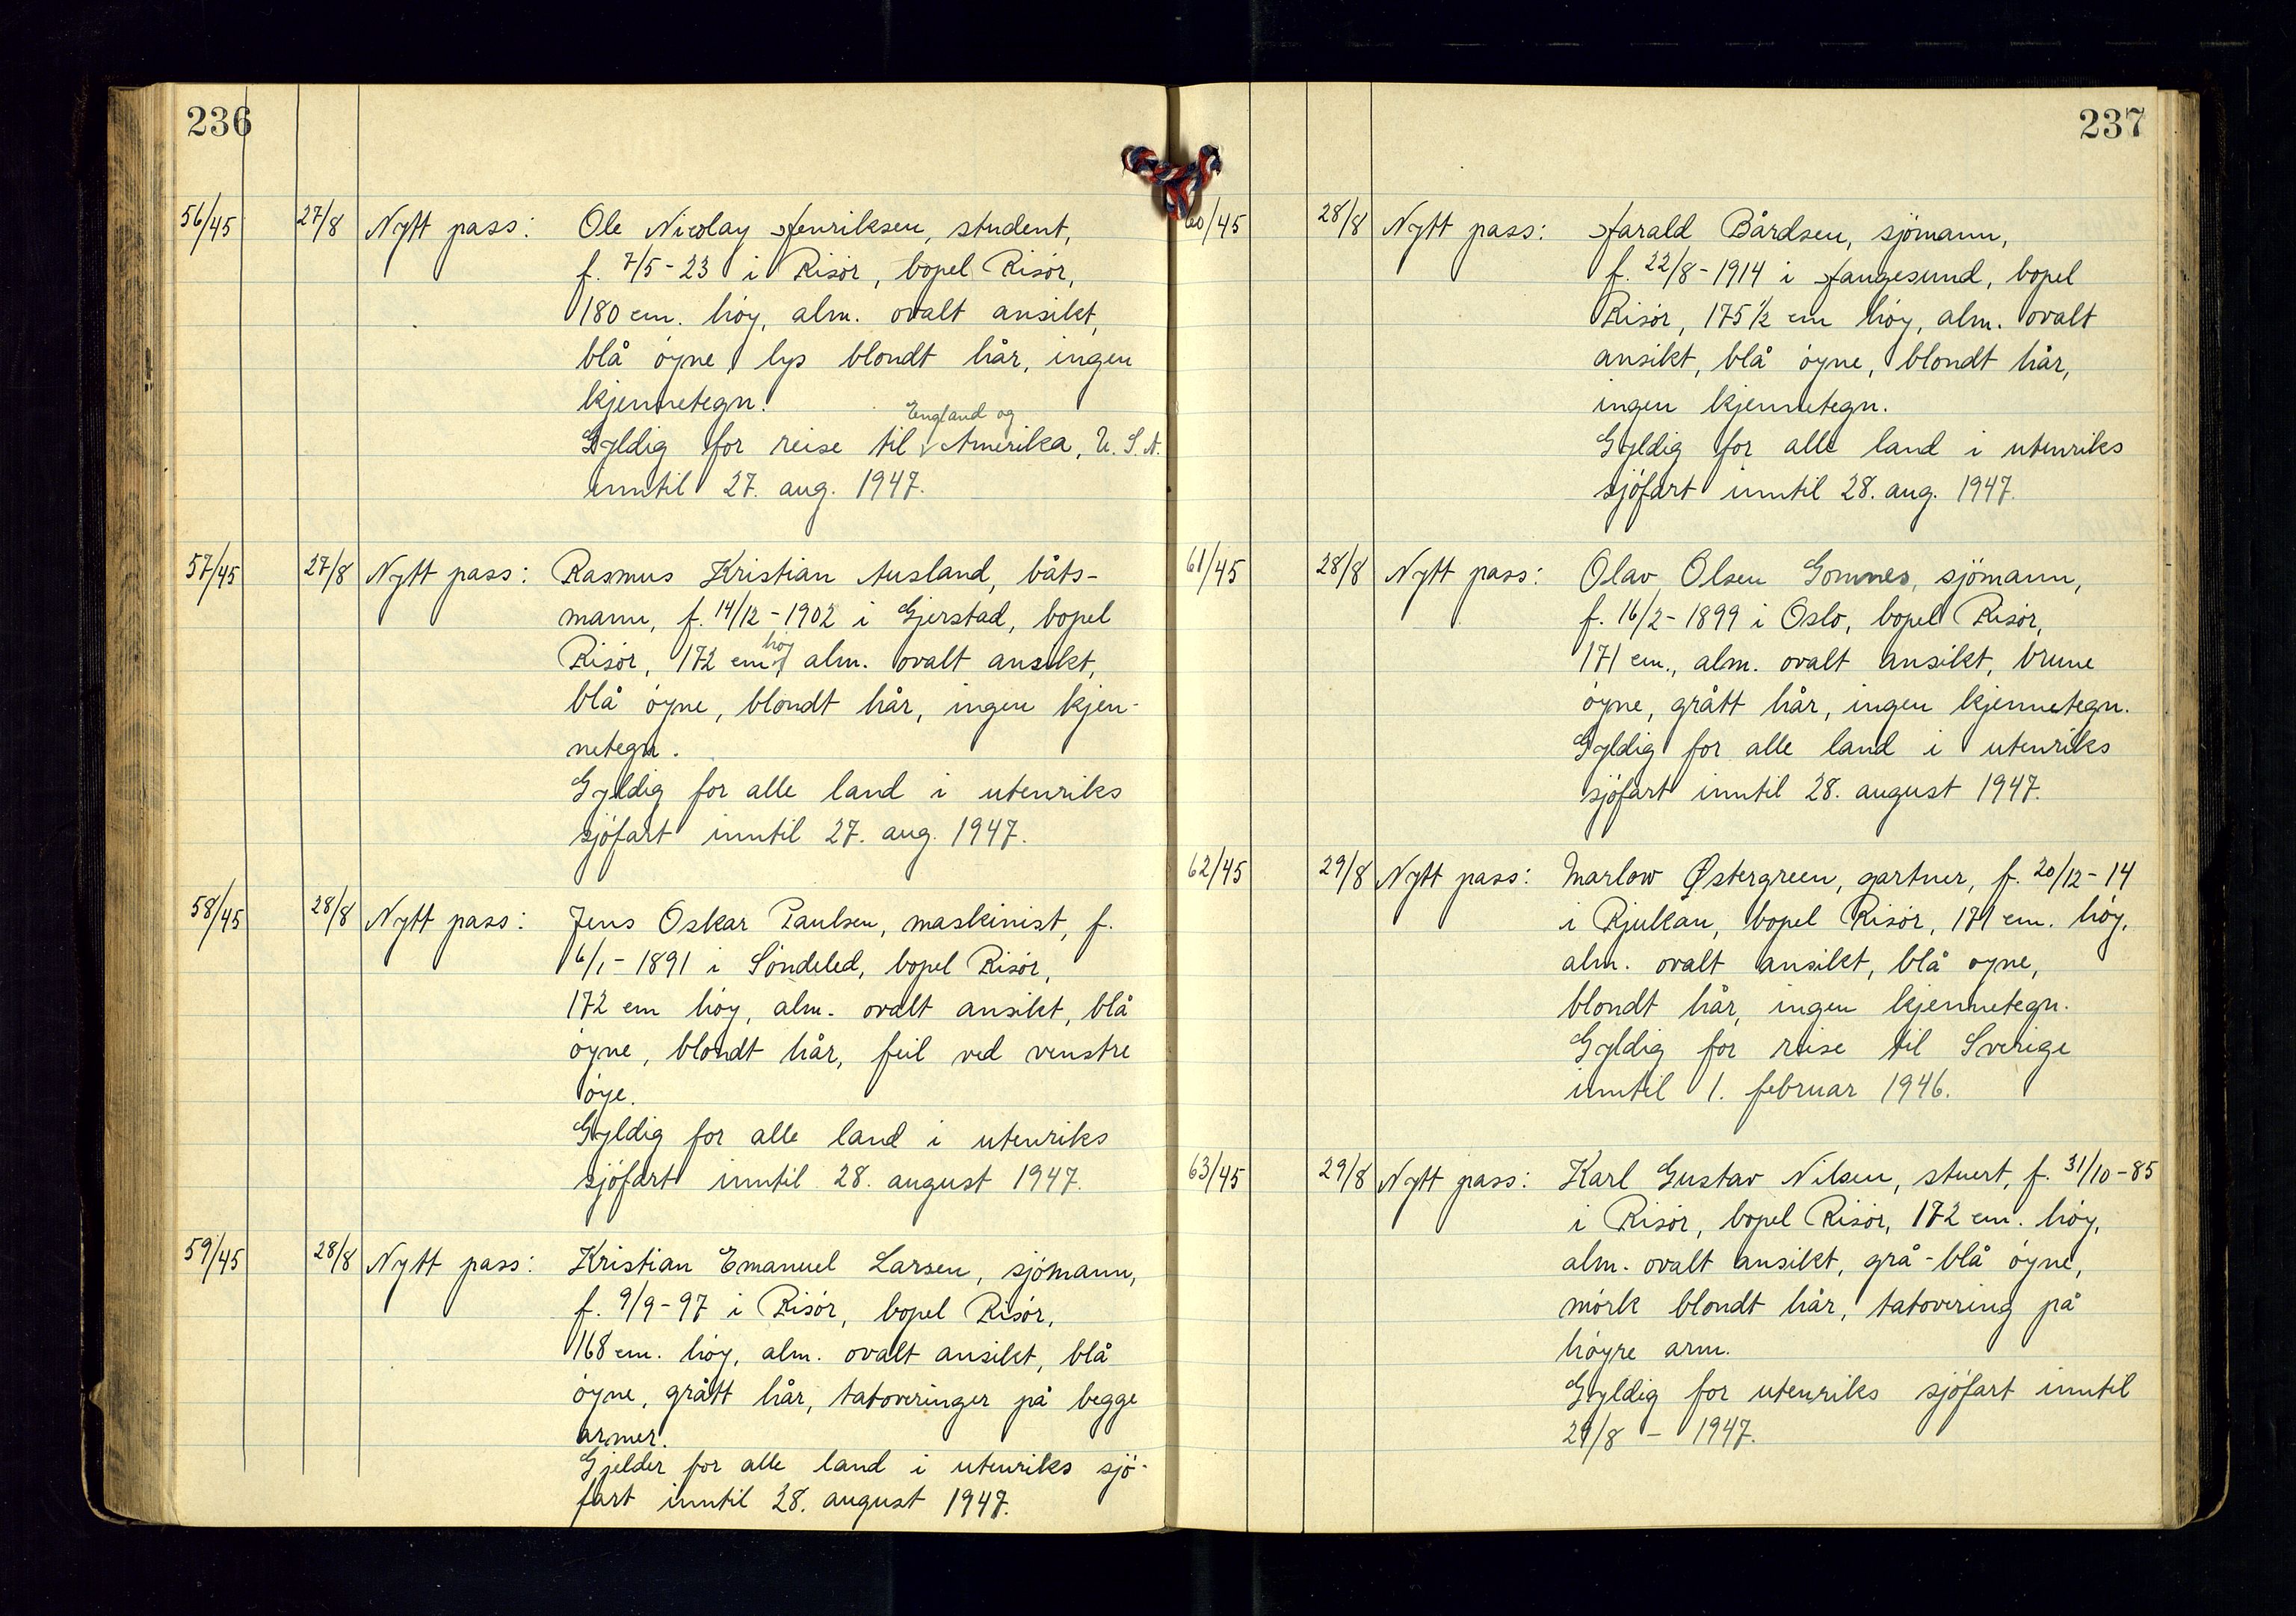 236
56/45 27/8 Nytt pass: Ole Nicolay Henriksen, student,
f. 7/5-23 i Risör, bopel Risör,
180 cm. höy, alm. ovalt ansikt,
blå öyne, lys blondt hår, ingen
kjennetegn.
England og
Gyldig for reise til Amerika, U.S.A.
inntil 27. aug. 1947.
57/45 27/8 Nytt pass: Rasmus Kristian Ausland, båts-
mann, f. 14/12-1902 i Gjerstad, bopel
Risör, 172 cm höy, alm. ovalt ansikt,
blå öyne, blondt hår, ingen kjen-
netegn.
Gyldig for alle land i utenriks
sjöfart inntil 27. aug. 1947.
58/45 28/8 Nytt pass: Jens Oskar Paulsen, maskinist, f.
6/1-1891 i Söndeled, bopel Risör,
172 cm höy, alm. ovalt ansikt, blå
öyne, blondt hår, feil ved venstre
öye.
Gyldig for alle land i utenriks
sjöfart inntil 28. august 1947.
59/45 28/8 Nytt pass: Kristian Emanuel Larsen, sjömann,
f. 9/9-97 i Risör, bopel Risör,
168 cm. höy, alm. ovalt ansikt, blå
öyne, grått hår, tatoveringer på begge
armer.
Gjelder for alle land i utenriks sjö-
fart inntil 28. august 1947.
237
60/45 28/8 Nytt pass: Harald Bårdsen, sjömann,
f. 22/8-1914 i Haugesund, bopel
Risör, 175 1/2 cm höy, alm. ovalt
ansikt, blå öyne, blondt hår,
ingen kjennetegn.
Gyldig for alle land i utenriks
sjöfart inntil 28. aug. 1947.
61/45 28/8 Nytt pass: Olav Olsen Gomnes, sjömann,
f. 16/2-1899 i Oslo, bopel Risör,
171 cm., alm. ovalt ansikt, brune
öyne, grått hår, ingen kjennetegn.
Gyldig for alle land i utenriks
sjöfart inntil 28. august 1947.
62/45 29/8 Nytt pass: Marlow Østergreen, gartner, f. 20/12-14
i Rjukan, bopel Risör, 171 cm. höy,
alm. ovalt ansikt, blå oyne,
blondt hår, ingen kjennetegn.
Gyldig for reise til Sverige
inntil 1. februar 1946.
63/45 29/8 Nytt pass: Karl Gustav Nilsen, stuert, f. 31/10-85
i Risör, bopel Risör, 172 cm. höy,
alm. ovalt ansikt, grå-blå öyne,
mörk blondt hår, tatovering på
höyre arm.
Gyldig for utenriks sjöfart inntil
29/8 - 1947.